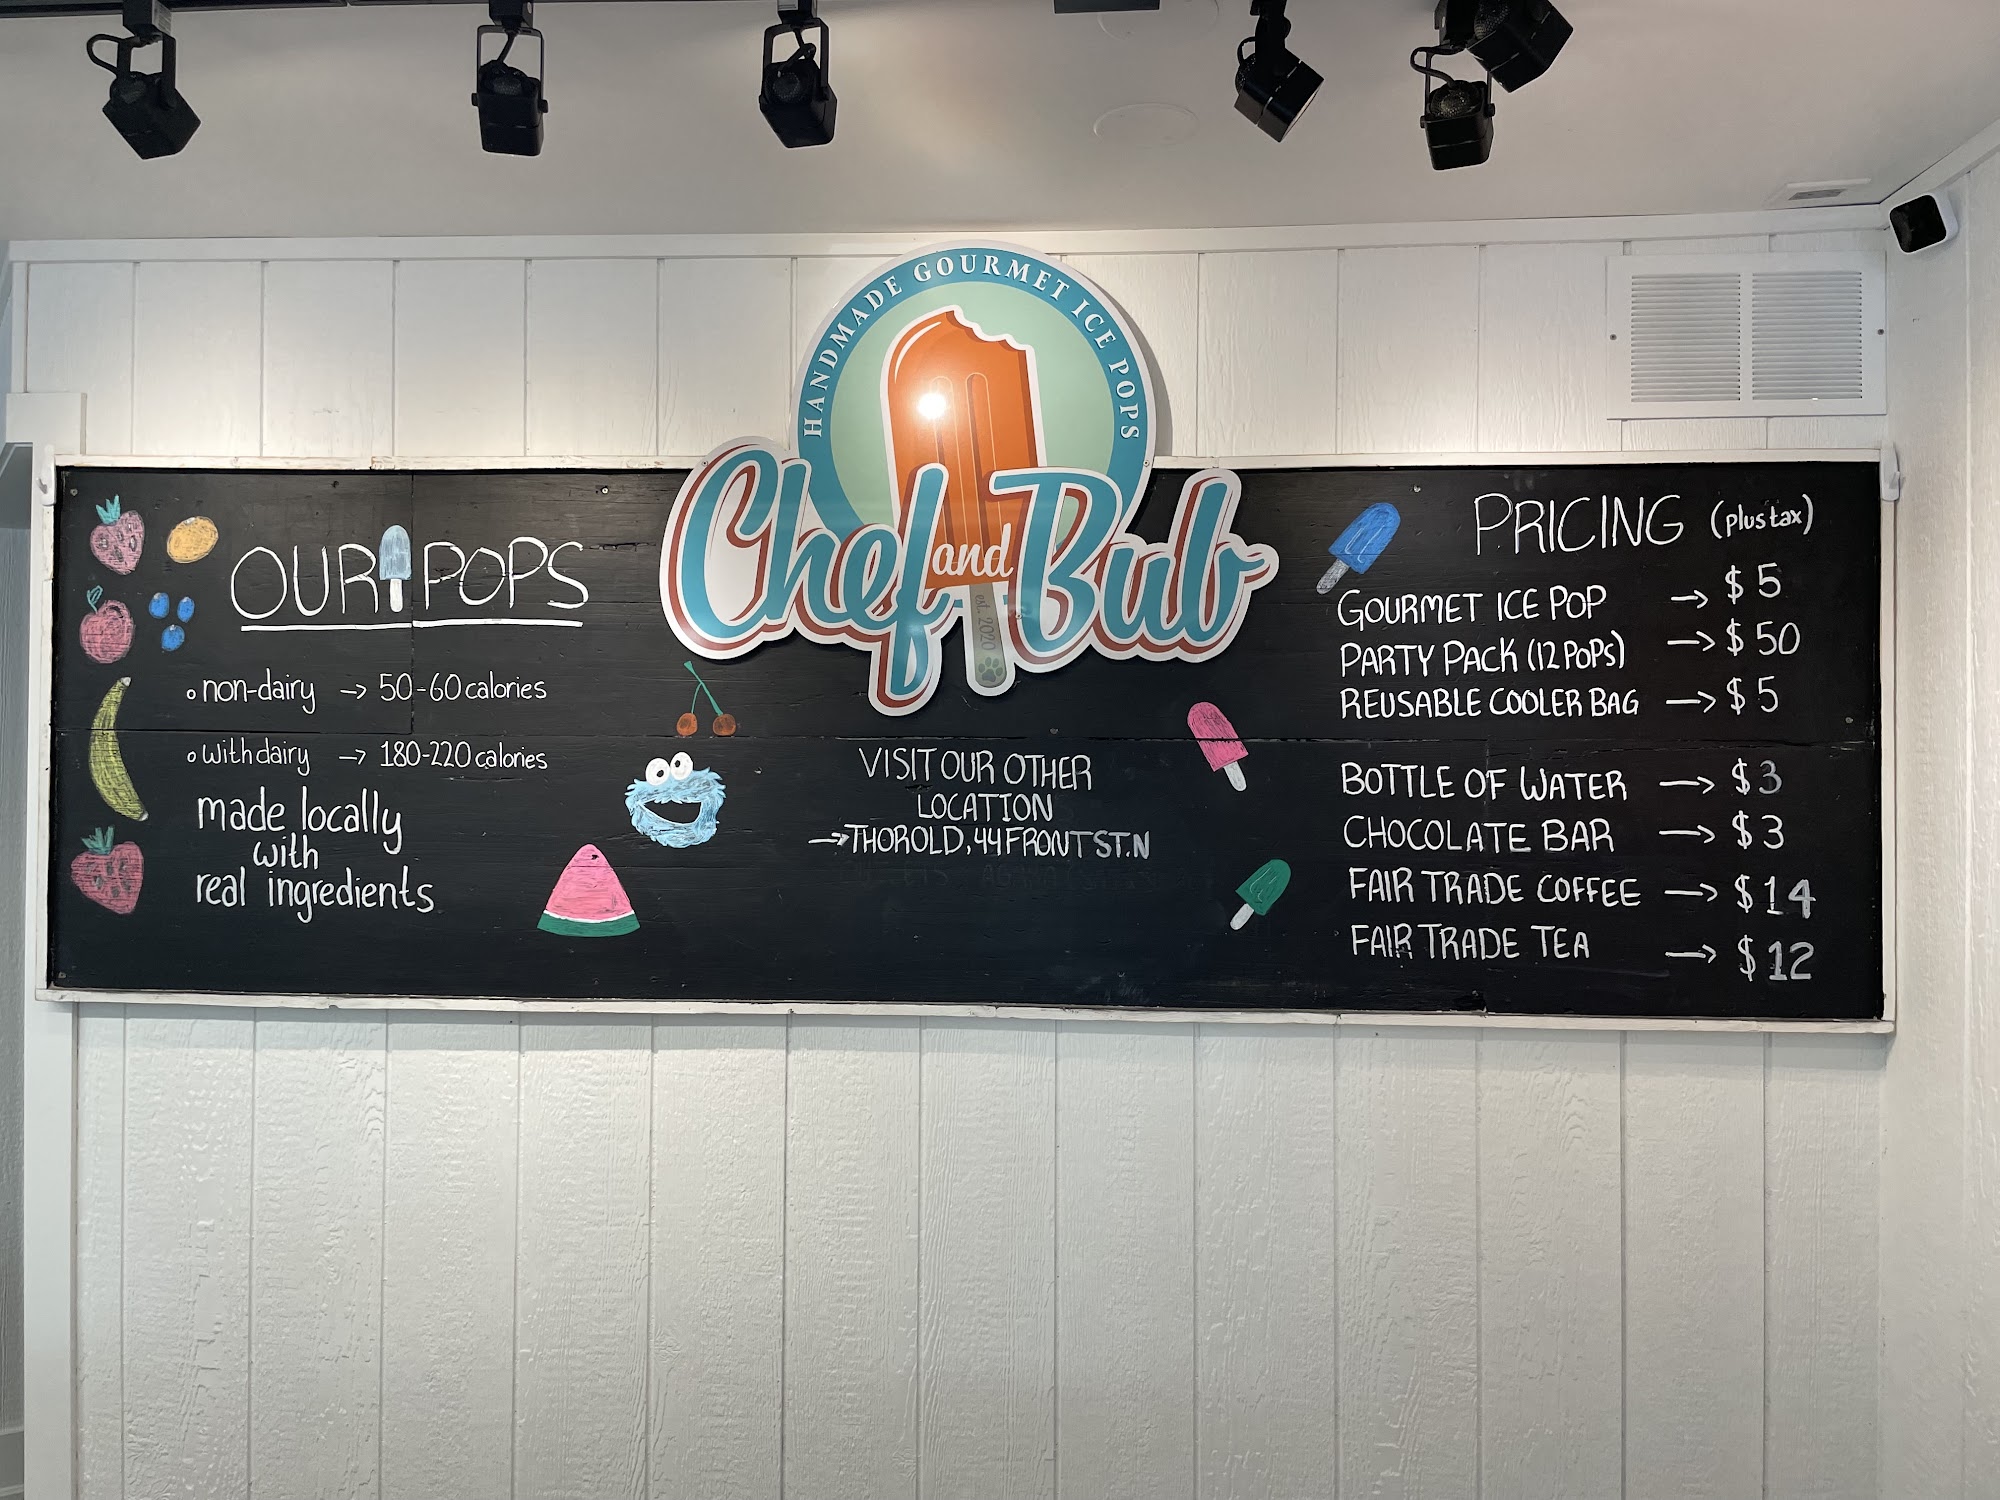 HANDMADE GOURMET ICE POPS
Chef and Bub
est. 2020
OUR POPS
non-dairy → 50-60 calories
with dairy → 180-220 calories
made locally
with
real ingredients
VISIT OUR OTHER
LOCATION
→ THOROLD, 44 FRONT ST. N
PRICING (plus tax)
GOURMET ICE POP → $5
PARTY PACK (12 POPS) → $50
REUSABLE COOLER BAG → $5
BOTTLE OF WATER → $3
CHOCOLATE BAR → $3
FAIR TRADE COFFEE → $14
FAIR TRADE TEA → $12